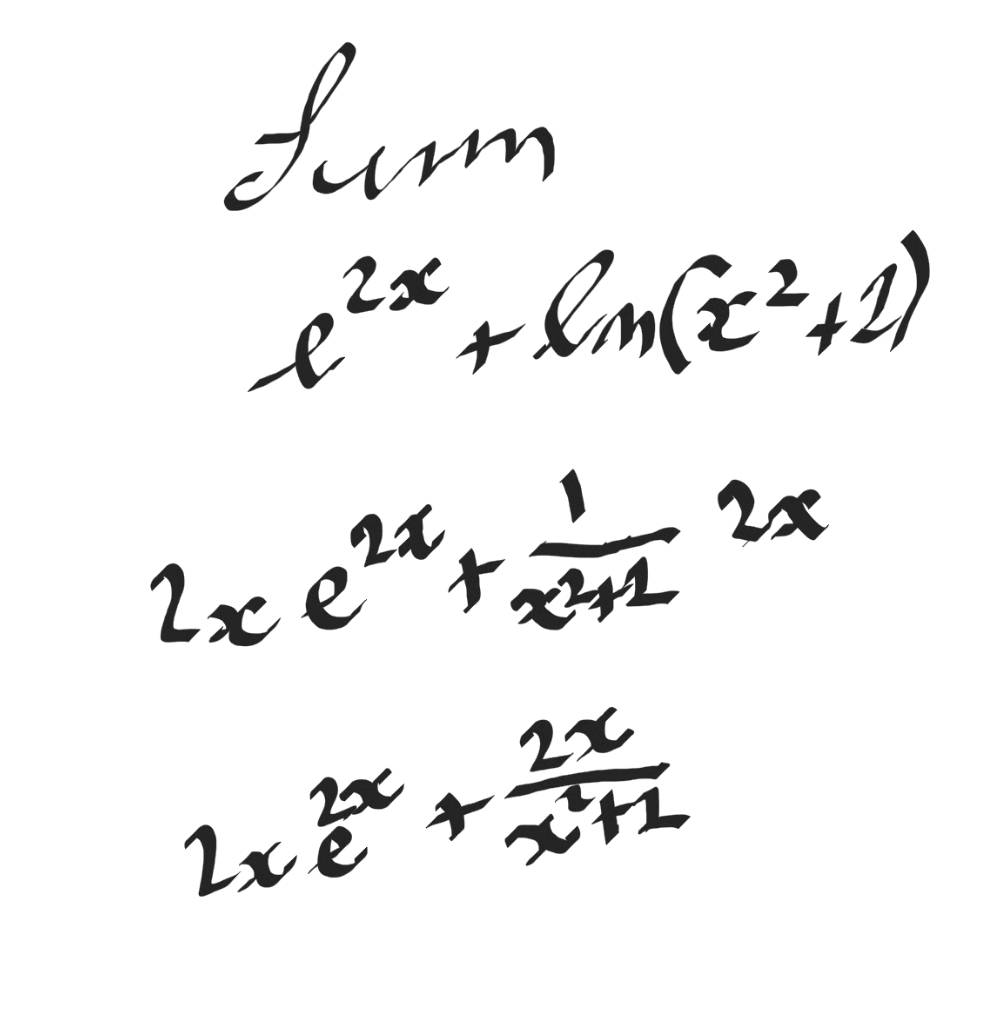 Sum
e^{2x} + ln(x^2+1)
2x e^{2x} + \frac{1}{x^2+1} 2x
2x e^{2x} + \frac{2x}{x^2+1}